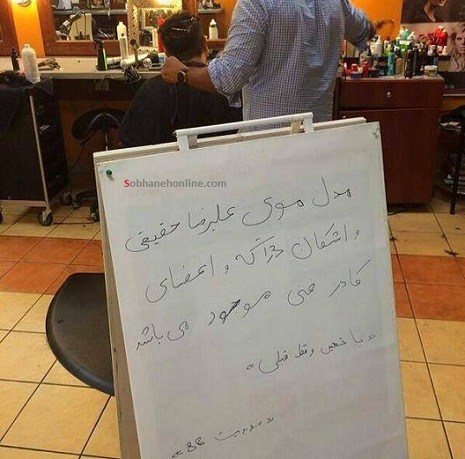 Sobhanehonline.com
مدل موی علیرضا حقیقی
و اشکان دژاگه و اعضای
کادر فنی موجود می باشد
با تعیین وقت قبلی
مدیریت